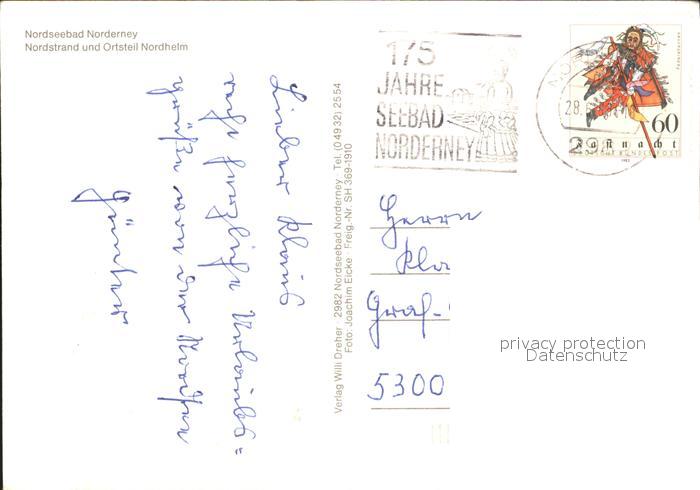 Nordseebad Norderney
Nordstrand und Ortsteil Nordhelm
175
JAHRE
SEEBAD
NORDERNEY
28
2
Fastnacht
60
DEUTSCHE BUNDESPOST
1983
Lieber Klaus
recht herzliche Urlaubs=
grüße von der Nordsee
Günther
Verlag Willi Dreher · 2982 Nordseebad Norderney, Tel. (0 49 32) 25 54
Foto: Joachim Eicke Freig.-Nr. SH 369-1910
Herrn
Kla
Graf-
5300
privacy protection
Datenschutz